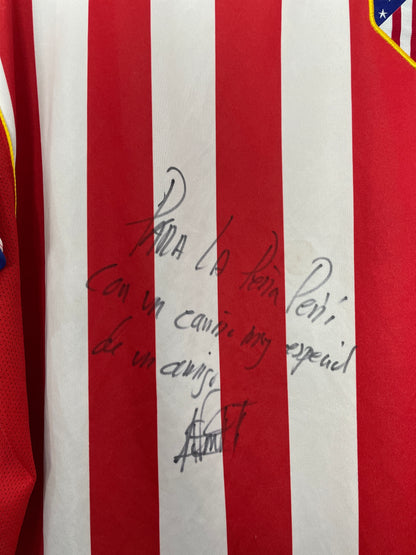 PARA LA Peña Peri
Con un cariño muy especial
de un amigo